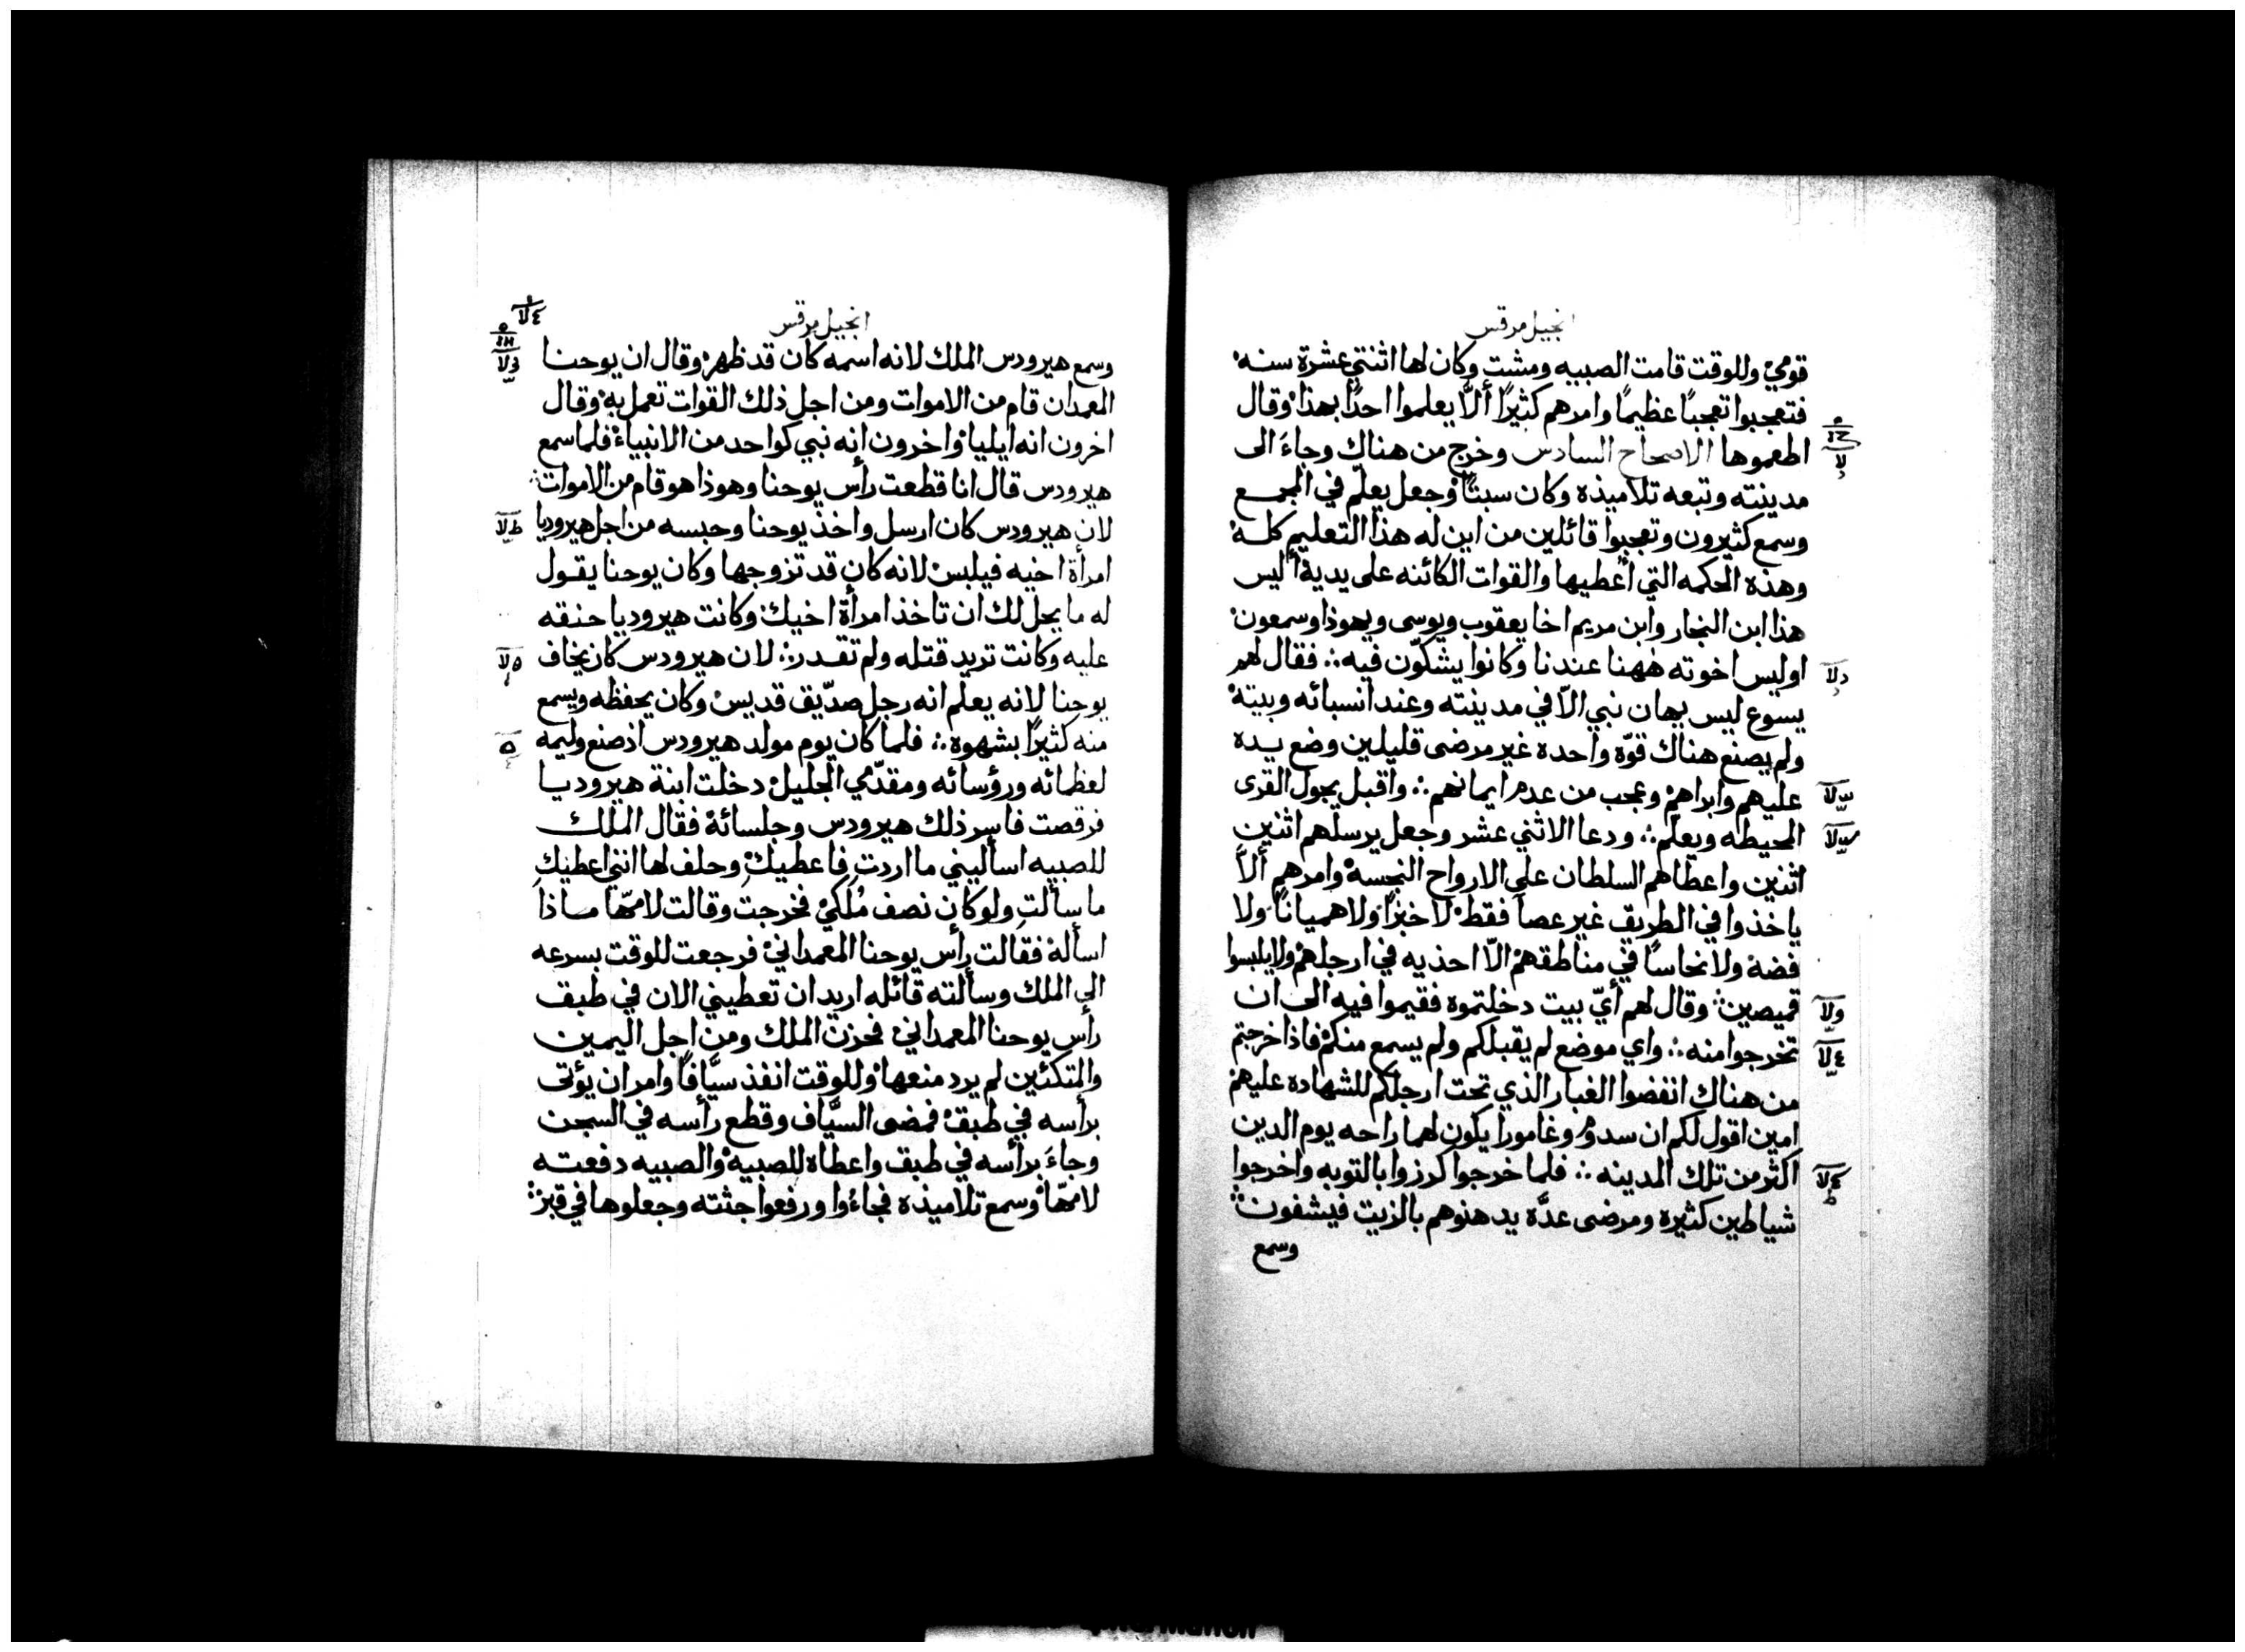 انجيل مرقس
قومي وللوقت قامت الصبيه ومشت وكان لها اثنتي عشرة سنه
فتعجبوا تعجبًا عظيمًا وامرهم كثيرًا ألّا يعلموا احدًا بهذا وقال
اطعموها الاصحاح السادس وخرج من هناك وجاءَ الى
مدينته وتبعه تلاميذه وكان سبتًا وجعل يعلّم في المجمع
وسمع كثيرون وتعجبوا قائلين من اين له هذا التعليم كله
وهذه الحكمه التي اُعطيها والقوات الكائنه على يديه أليس
هذا ابن النجار وابن مريم اخا يعقوب ويوسى ويهوذا وسمعون
اوليس اخوته ههنا عندنا وكانوا يشكّون فيه ∴ فقال لهم
يسوع ليس يهان نبي الّا في مدينته وعند انسبائه وبيته
ولم يصنع هناك قوّه واحده غير مرضى قليلين وضع يده
عليهم وابراهم وعجب من عدم ايمانهم ∴ واقبل يجول القرى
المحيطه ويعلم ∴ ودعا الاثني عشر وجعل يرسلهم اثنين
اثنين واعطاهم السلطان على الارواح النجسه وامرهم ألّا
ياخذوا في الطريق غير عصا فقط لا خبزًا ولا هميانًا ولا
فضه ولا نحاسًا في مناطقهم الّا احذيه في ارجلهم ولا يلبسوا
قميصين ∴ وقال لهم أيّ بيت دخلتموه فقيموا فيه الى ان
تخرجوا منه ∴ واي موضع لم يقبلكم ولم يسمع منكم فاذا خرجتم
من هناك انفضوا الغبار الذي تحت ارجلكم للشهاده عليهم
امين اقول لكم ان سدوم وغامورا يكون لهما راحه يوم الدين
اكثر من تلك المدينه ∴ فلما خرجوا كرزوا بالتوبه واخرجوا
شياطين كثيره ومرضى عدّه يدهنوهم بالزيت فيشفون ∴
وسمع
انجيل مرقس
وسمع هيرودس الملك لانه اسمه كان قد ظهر وقال ان يوحنا
المعمدان قام من الاموات ومن اجل ذلك القوات تعمل به وقال
اخرون انه ايليا واخرون انه نبي كواحد من الانبياء فلما سمع
هيرودس قال انا قطعت رأس يوحنا وهوذا هو قام من الاموات ∴
لان هيرودس كان ارسل واخذ يوحنا وحبسه من اجل هيروديا
امرأة اخيه فيلبس لانه كان قد تزوجها وكان يوحنا يقول
له ما يحل لك ان تاخذ امرأة اخيك وكانت هيروديا حنقه
عليه وكانت تريد قتله ولم تقدر ∴ لان هيرودس كان يخاف
يوحنا لانه يعلم انه رجل صدّيق قديس وكان يحفظه ويسمع
منه كثيرًا بشهوه ∴ فلما كان يوم مولد هيرودس اذ صنع وليمه
لعظمائه ورؤسائه ومقدّمي الجليل دخلت ابنة هيروديا
فرقصت فاسر ذلك هيرودس وجلسائه فقال الملك
للصبيه اساليني ما اردت فاعطيك وحلف لها انني اعطيك
ما سألت ولو كان نصف مُلكي فخرجت وقالت لامّها ماذا
اسأله فقالت رأس يوحنا المعمداني فرجعت للوقت بسرعه
الى الملك وسألته قائله اريد ان تعطيني الان في طبق
رأس يوحنا المعمداني فحزن الملك ومن اجل اليمين
والمتكئين لم يرد منعها وللوقت انفذ سيَّافًا وامر ان يؤتى
برأسه في طبق فمضى السيَّاف وقطع رأسه في السجن
وجاءَ برأسه في طبق واعطاه للصبيه والصبيه دفعته
لامّها وسمع تلاميذه فجاءُوا ورفعوا جثته وجعلوها في قبر ∴